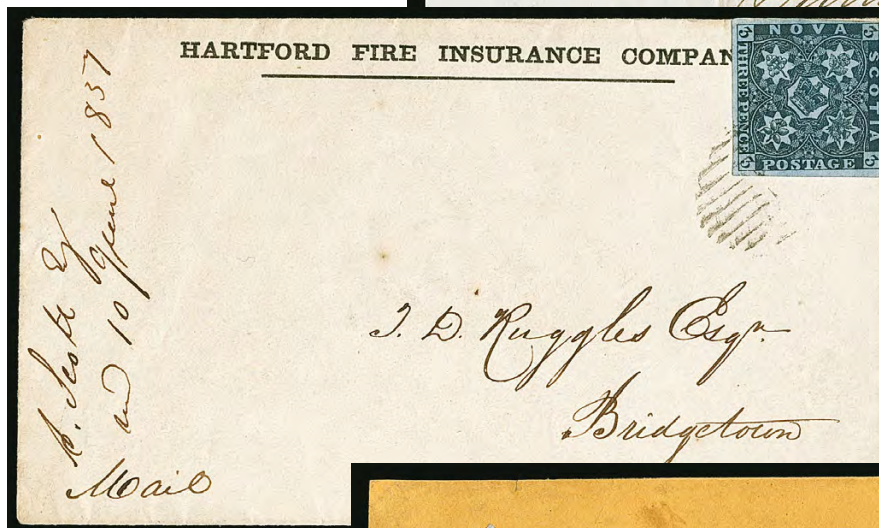 HARTFORD FIRE INSURANCE COMPAN
NOVA
SCOTIA
THREE PENCE
POSTAGE
3
3
3
3
10 June 1857
J. D. Ruggles Esqr.
Bridgetown
Mail